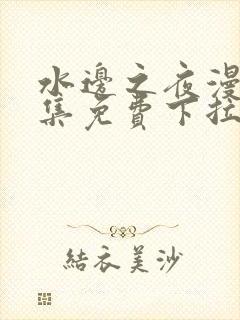 水邊之夜漫
集免費下拉
結衣美沙